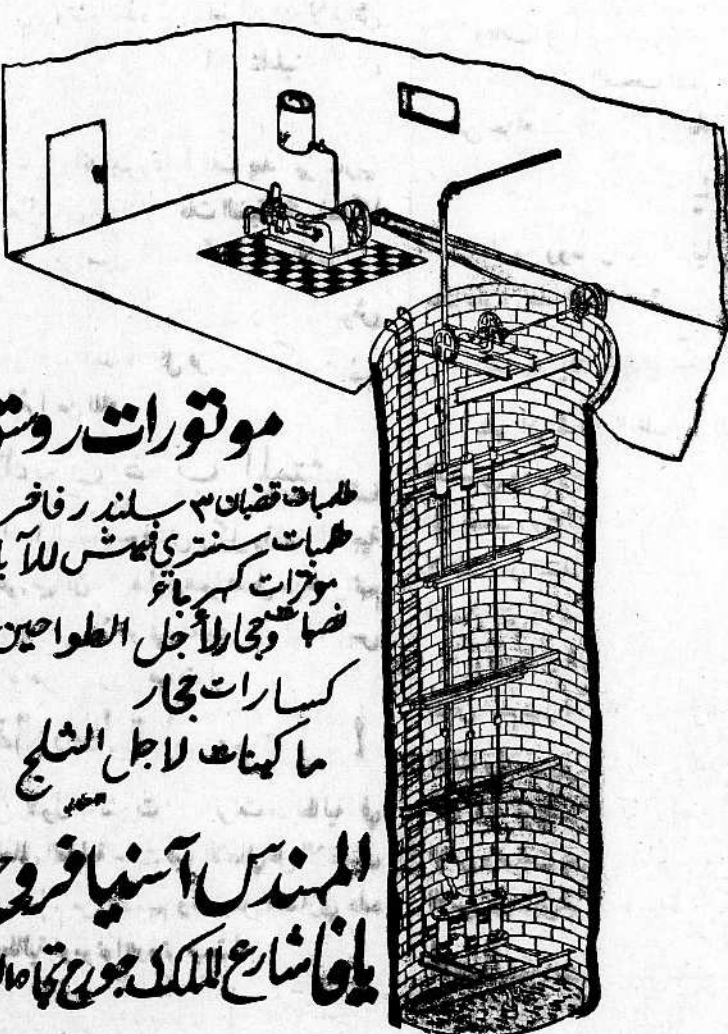 موتورات روستو
طلمبات قضبان ٣ سلندر فاخر
طلمبات سنتري للآبا
موترات كهرباء
نصبات وحجار لأجل الطواحين
كسارات حجار
ماكينات لاجل الثلج
المهندس آسيا فروج
يافا شارع الملك جورج تجاه ال